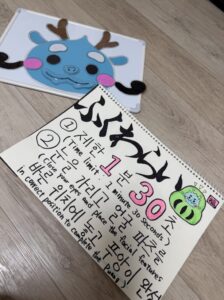 ふくわらい
① 제한 1분 30초
(Time limit 1 minute 30 seconds)
② 눈을 가리고 얼굴 파츠를
(Close your eyes and place facial features
바른 위치에 놓
in correct position to complete the